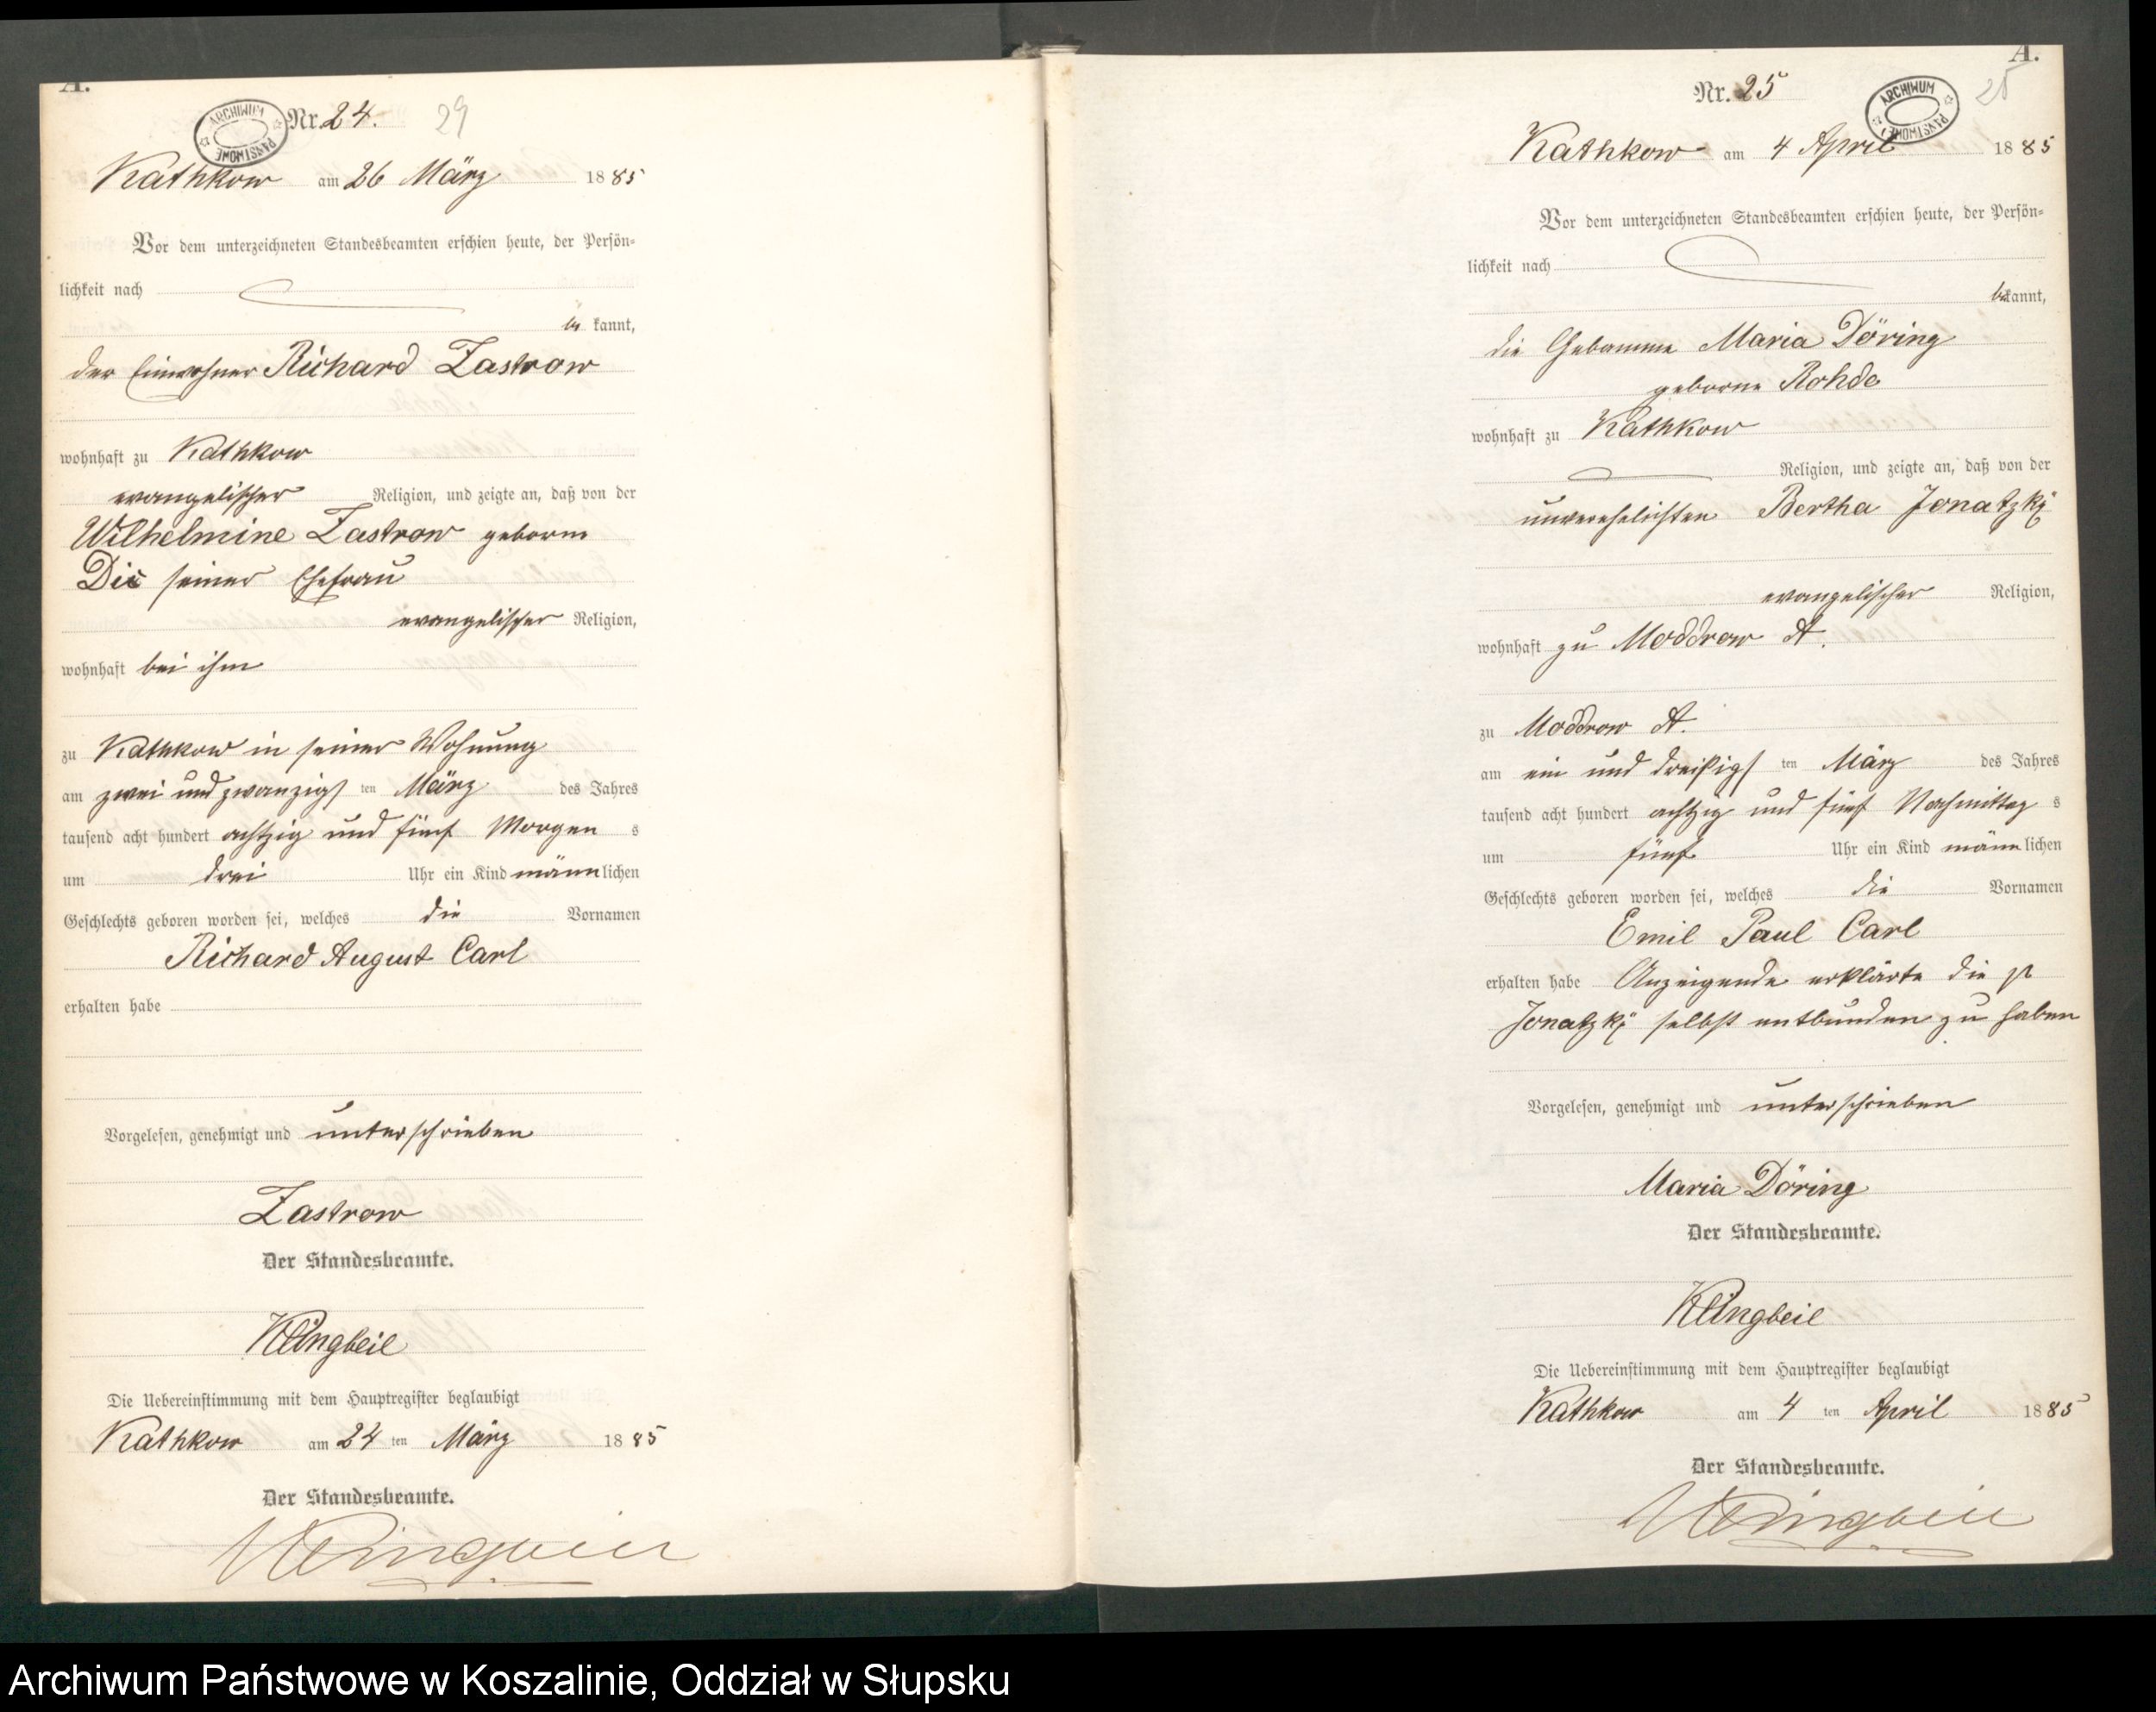 A.
Nr. 24. 29
ARCHIWUM PAŃSTWOWE
Kathkow am 26 März 1885
Vor dem unterzeichneten Standesbeamten erschien heute, der Persön-
lichkeit nach
be kannt,
der Einwohner Richard Zastrow
wohnhaft zu Kathkow
evangelischer Religion, und zeigte an, daß von der
Wilhelmine Zastrow geborne
seiner Ehefrau
evangelischer Religion,
wohnhaft bei ihm
zu Kathkow in seiner Wohnung
am zwei und zwanzigs ten März des Jahres
tausend acht hundert achtzig und fünf Morgen s
um drei Uhr ein Kind männ lichen
Geschlechts geboren worden sei, welches die Vornamen
Richard August Carl
erhalten habe
Vorgelesen, genehmigt und unterschrieben
Zastrow
Der Standesbeamte.
Klingbeil
Die Uebereinstimmung mit dem Hauptregister beglaubigt
Kathkow am 24 ten März 1885
Der Standesbeamte.
Klingbeil
A.
Nr. 25 25
ARCHIWUM PAŃSTWOWE
Kathkow am 4 April 1885
Vor dem unterzeichneten Standesbeamten erschien heute, der Persön-
lichkeit nach
bekannt,
die Hebamme Maria Döring
geborne Rohde
wohnhaft zu Kathkow
Religion, und zeigte an, daß von der
unverehelichten Bertha Jonatzky
evangelischer Religion,
wohnhaft zu Moddrow A.
zu Moddrow A.
am ein und dreißigs ten März des Jahres
tausend acht hundert achtzig und fünf Nachmittag s
um fünf Uhr ein Kind männ lichen
Geschlechts geboren worden sei, welches die Vornamen
Emil Paul Carl
erhalten habe Anzeigende erklärte die p
Jonatzky selbst entbunden zu haben
Vorgelesen, genehmigt und unterschrieben
Maria Döring
Der Standesbeamte.
Klingbeil
Die Uebereinstimmung mit dem Hauptregister beglaubigt
Kathkow am 4 ten April 1885
Der Standesbeamte.
Klingbeil
Archiwum Państwowe w Koszalinie, Oddział w Słupsku